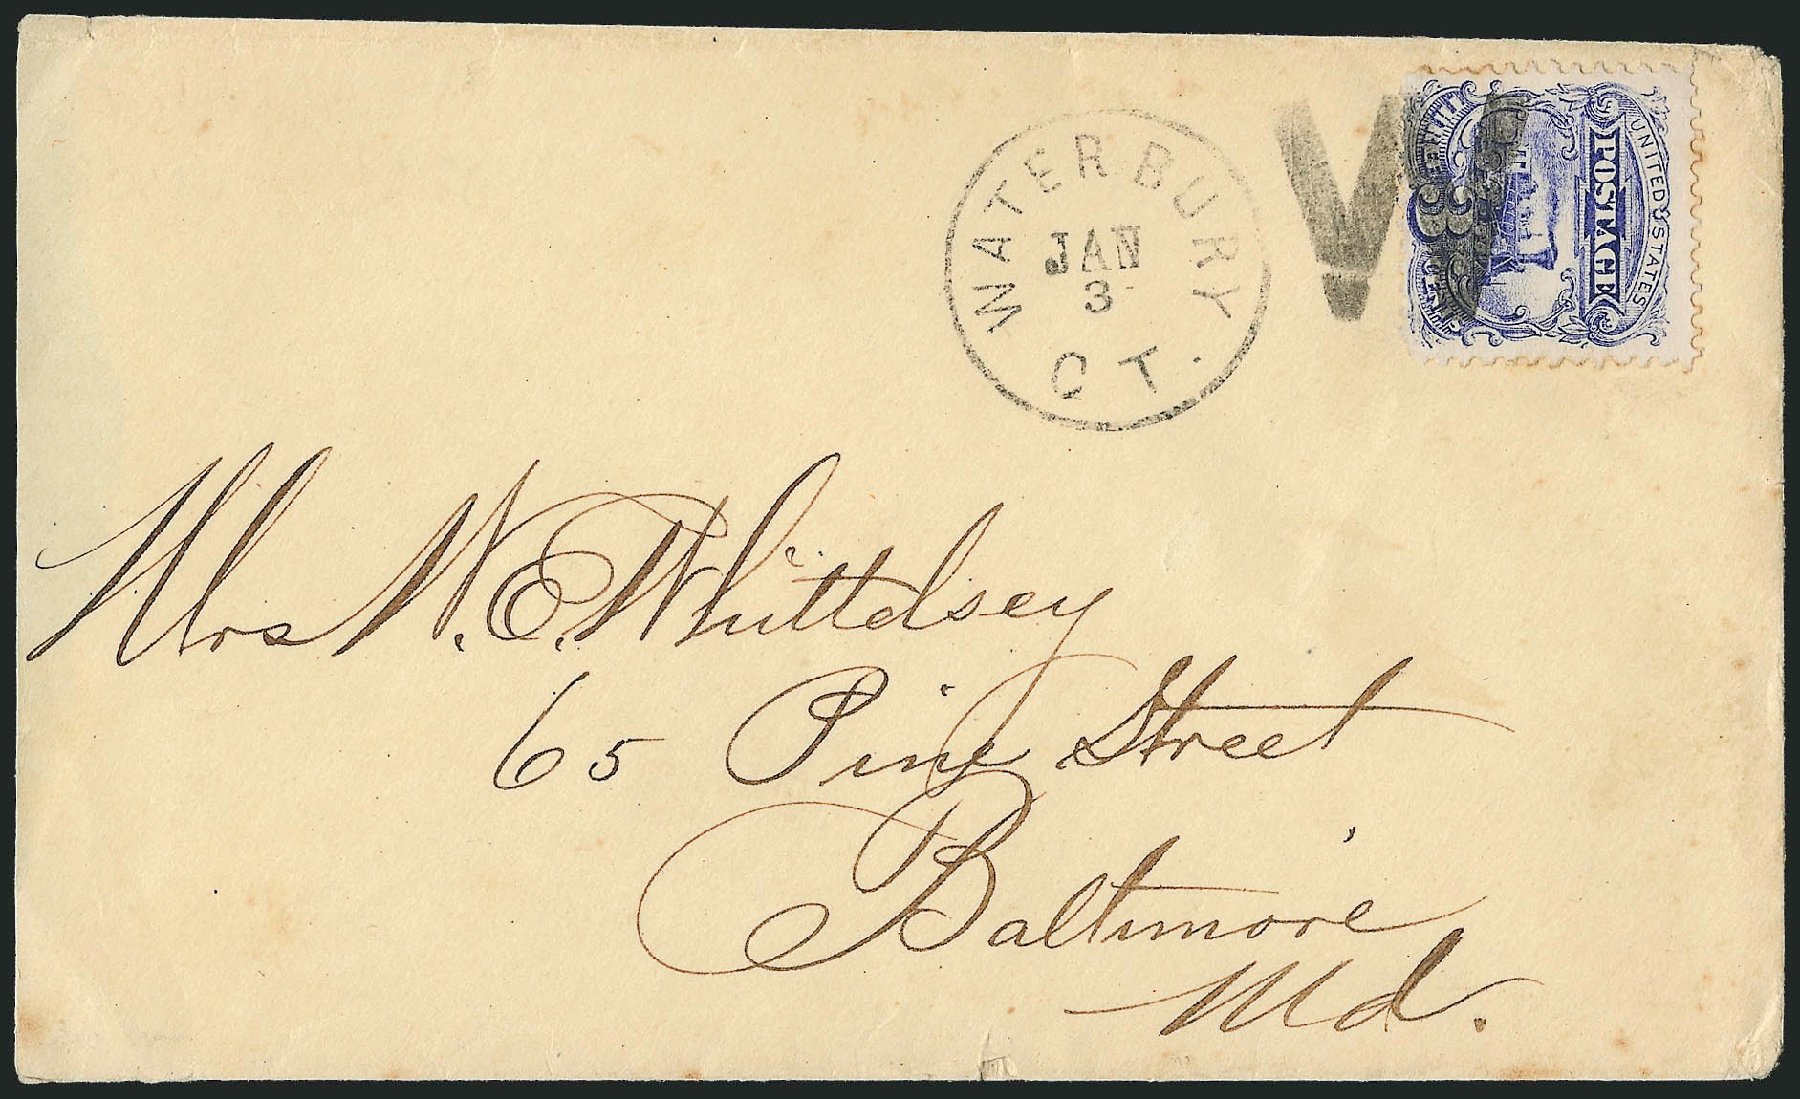 WATERBURY
JAN
3
CT.
W
UNITED STATES
POSTAGE
3
Mrs N. E. Whittelsey
65 Pine Street
Baltimore
Md.